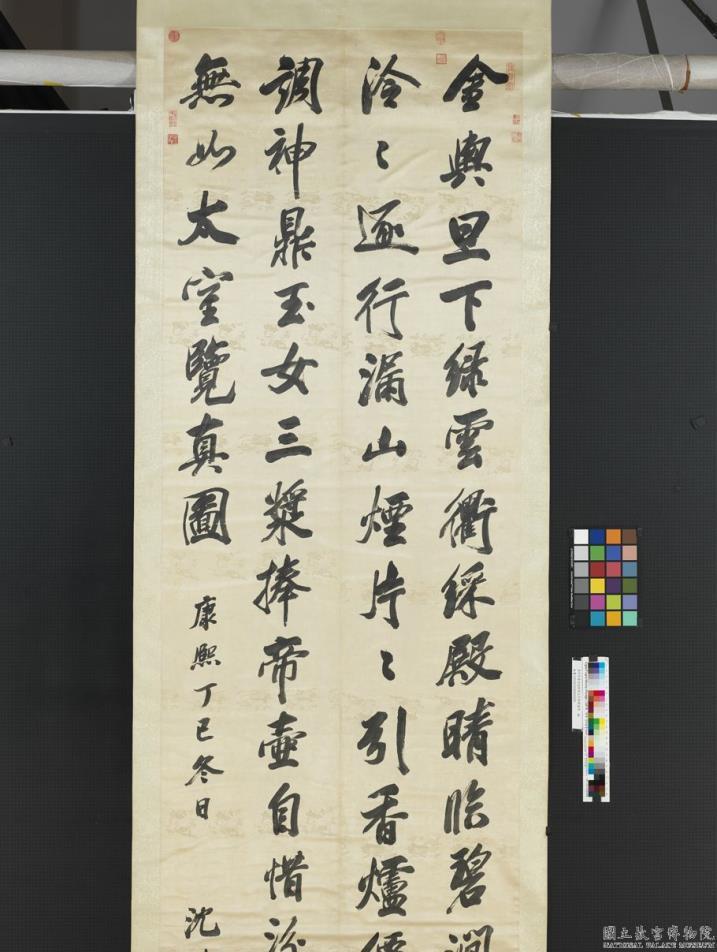 金輿旦下綠雲衢綵殿晴臨碧澗
泠〻逐行漏山煙片〻引香爐僊
調神鼎玉女三漿捧帝壺自惜汾
無如太室覽真圖
康熙丁巳冬日 沈
國立故宮博物院
NATIONAL PALACE MUSEUM